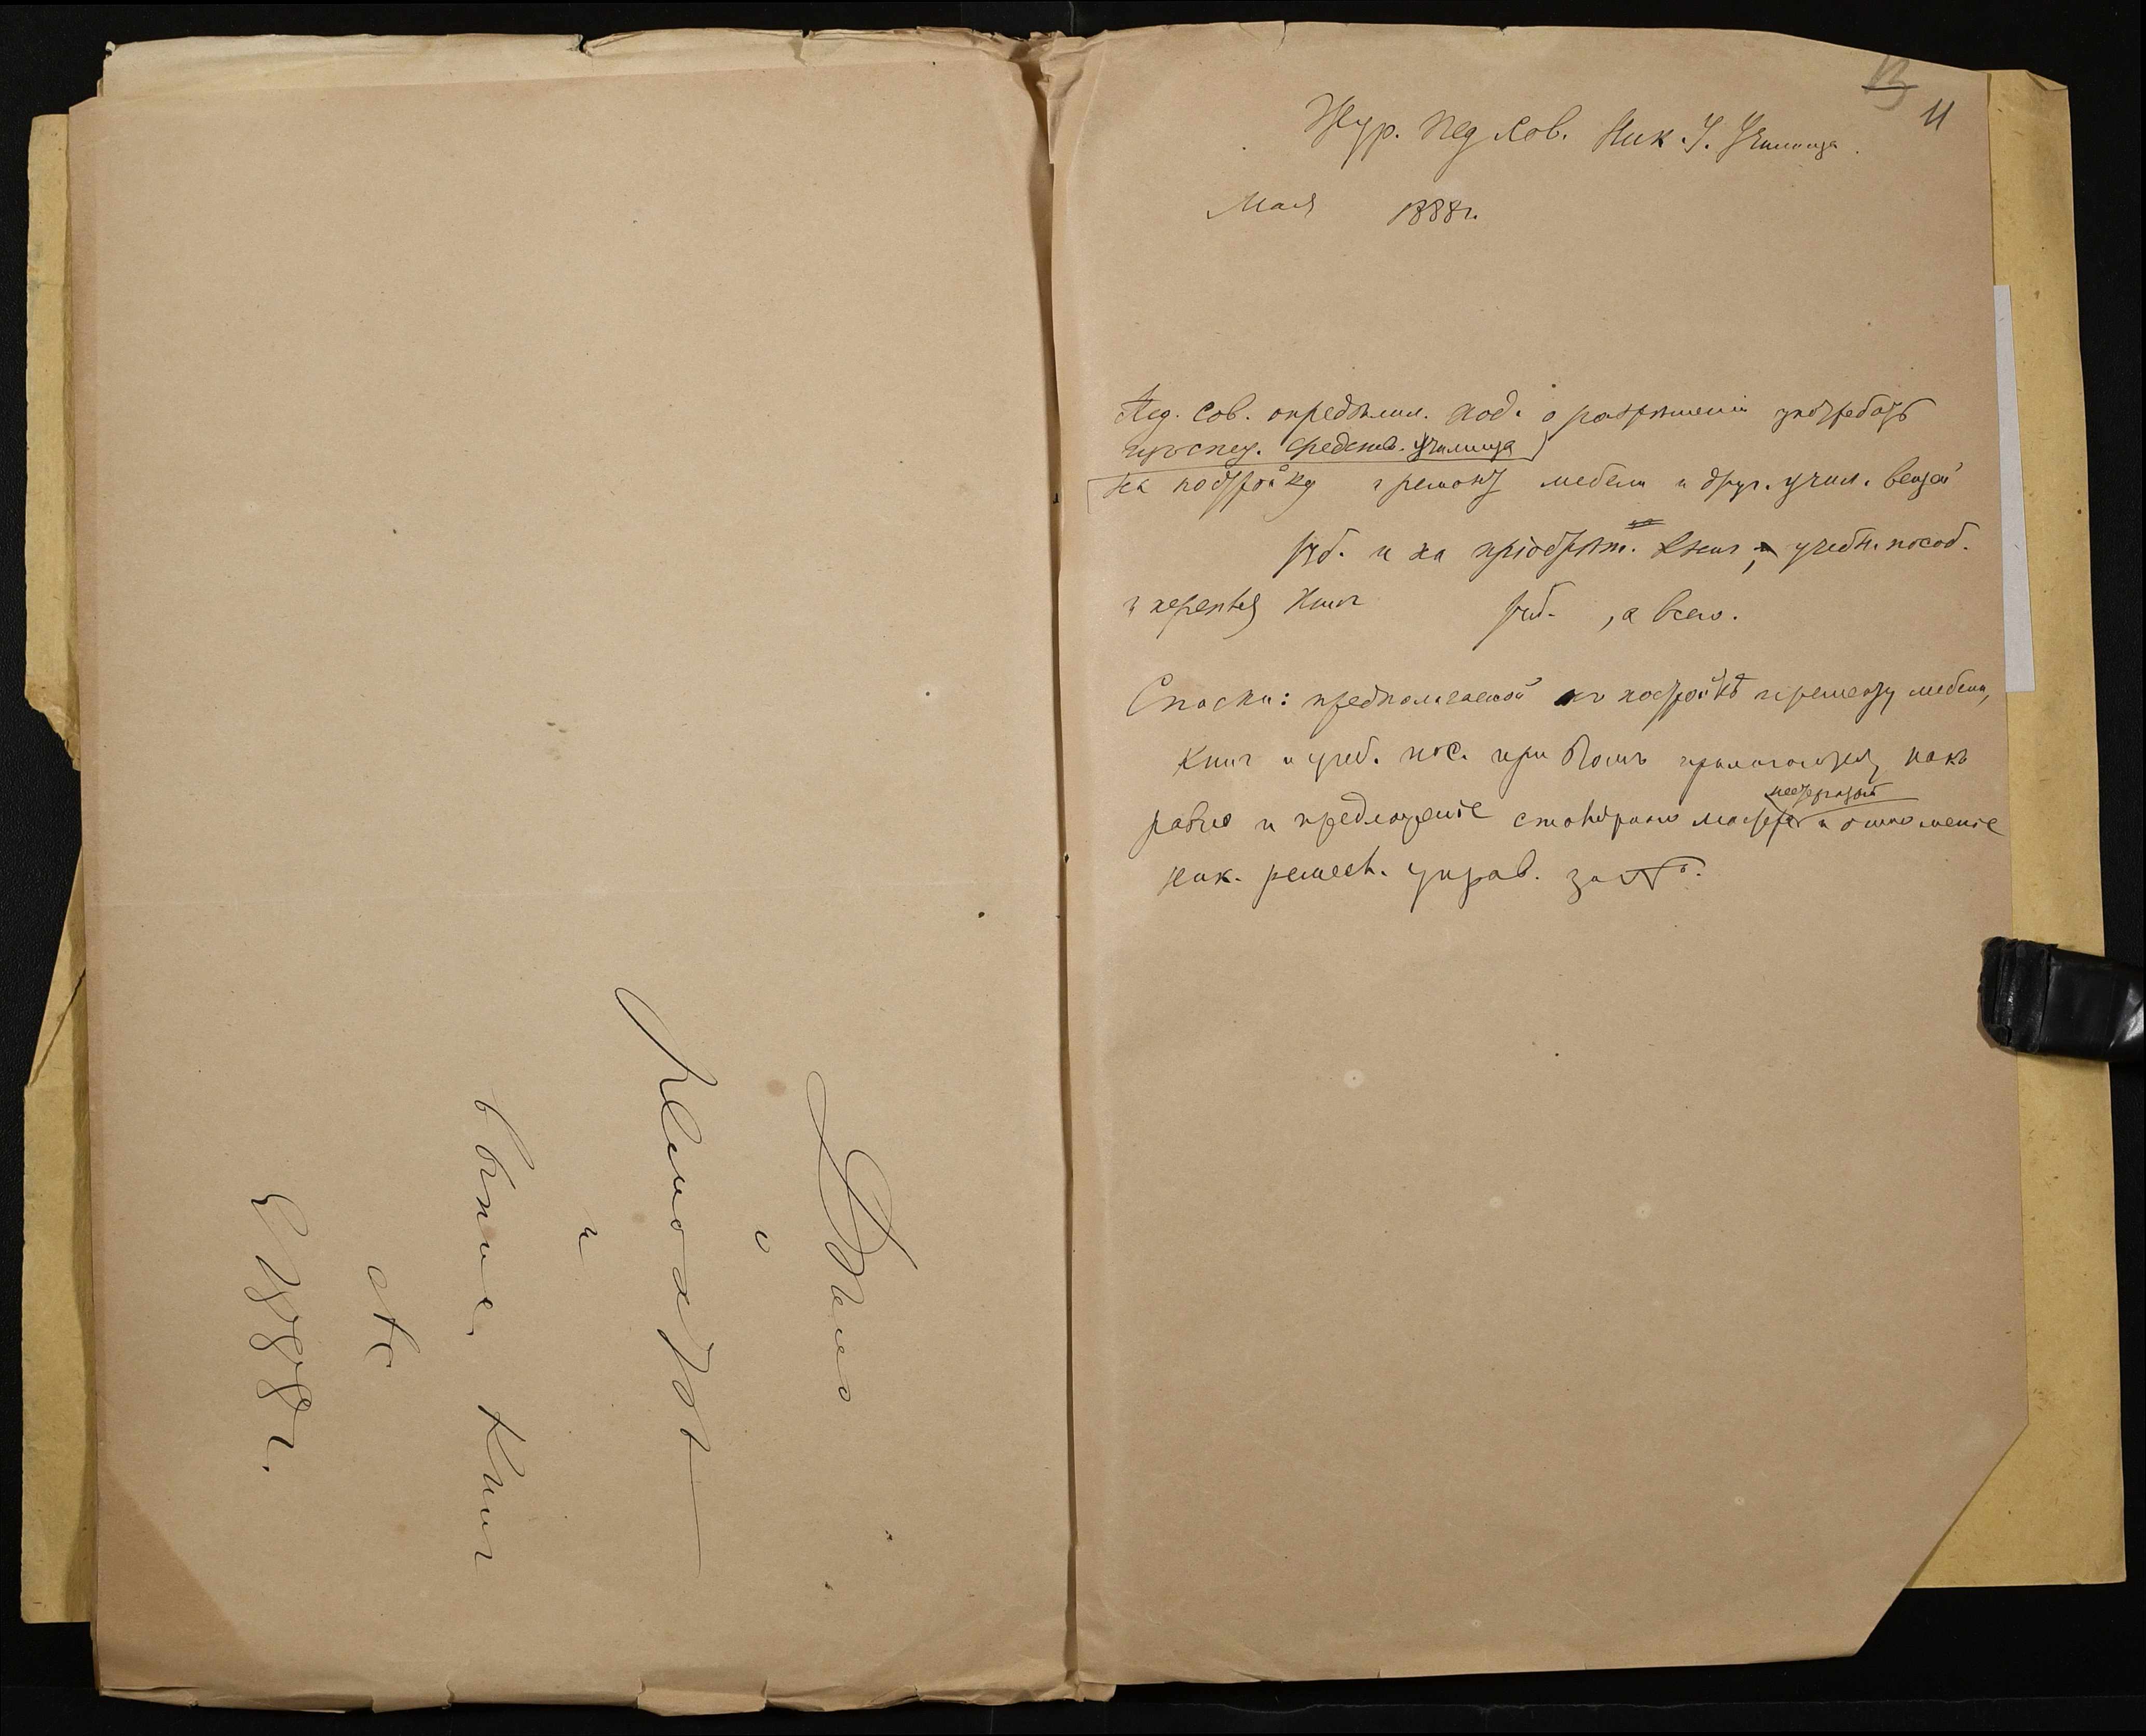 Дѣло
о
ремонтѣ
и
выпискѣ книг
etc
1888 г.
13
11
Жур. Пед. Сов. Ник. У. Училища.
Мая 1888 г.
Пед. Сов. опредѣлил. ход. о разрѣшеніи употребить
из спец. средств. училища
на постройку и ремонт мебели и друг. учил. вещей
руб. и на пріобрѣт. книг, учебн. пособ.
и переплет книг руб. , а всего.
Списки: предполагаемой къ постройкѣ и ремонту мебели,
книг и учеб. пос. при этомъ прилагаются, какъ
равно и предложеніе столярнаго мастера и отношеніе
Ник. ремесл. управ. за №.